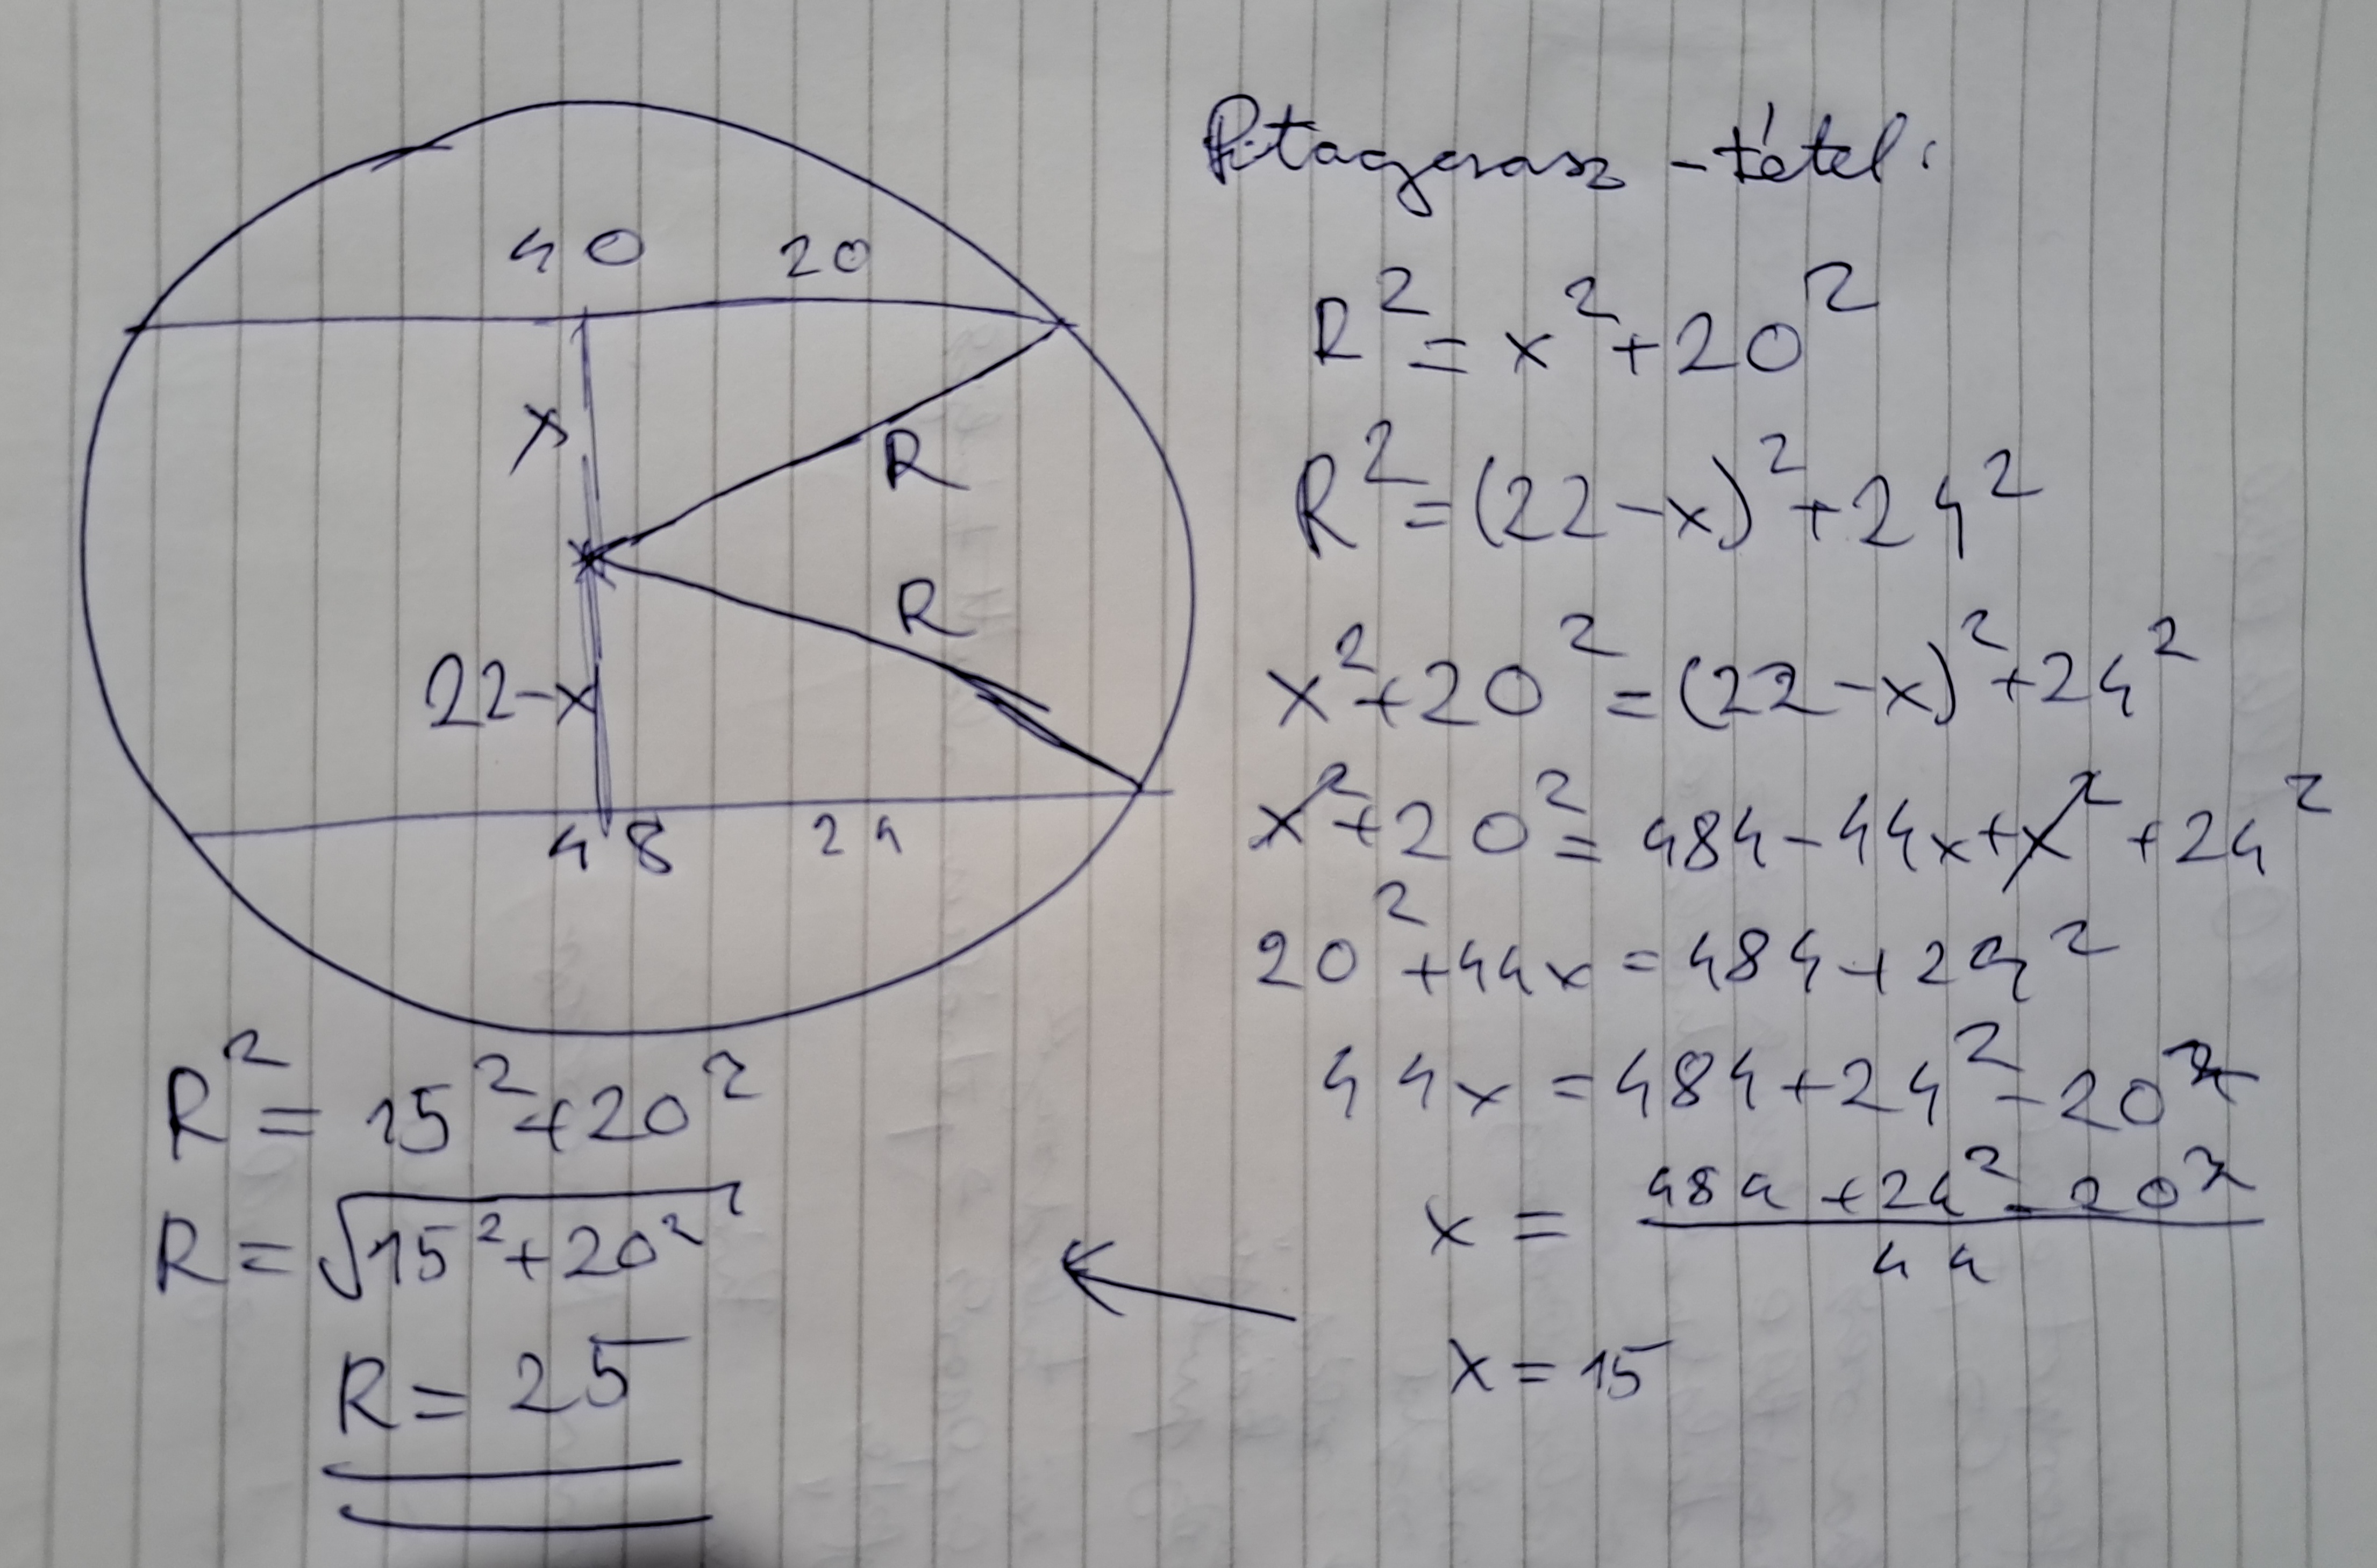 40 20
x
R
R
22-x
48 24
Pitagorasz-tétel:
R² = x² + 20²
R² = (22-x)² + 24²
x² + 20² = (22-x)² + 24²
x² + 20² = 484 - 44x + x² + 24²
20² + 44x = 484 + 24²
44x = 484 + 24² - 20²
x = (484 + 24² - 20²) / 44
x = 15
R² = 15² + 20²
R = √(15² + 20²)
R = 25